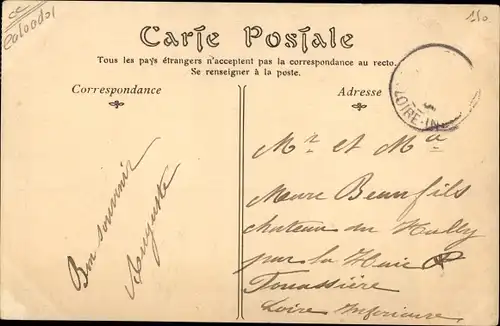 Carte Postale
Tous les pays étrangers n'acceptent pas la correspondance au recto.
Se renseigner à la poste.
Correspondance
Adresse
LOIRE-IN
Bon souvenir
Auguste
Mr et Ma
Beaufils
chateau du
par la Haie
Fouassière
Loire Inférieure